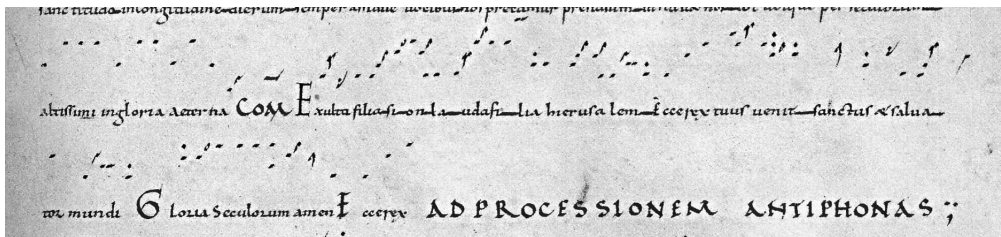 altissimi ingloria aeterna COM Exulta filia sion lauda filia hierusalem Ecce rex tuus venit sanctus & salva
tor mundi Gloria Seculorum amen E ecce rex AD PROCESSIONEM ANTIPHONAS